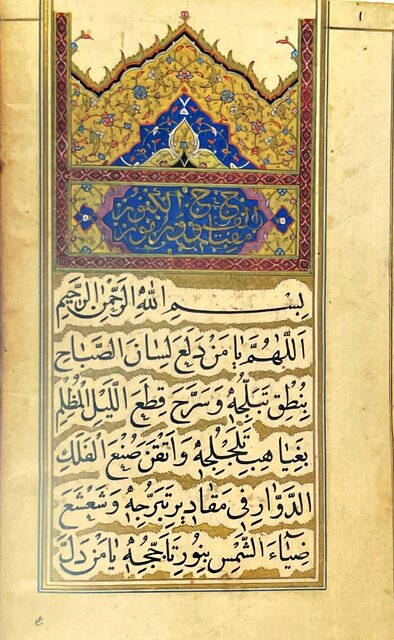 ١
بِسْمِ اللّٰهِ الرَّحْمٰنِ الرَّحِيْمِ
اَللّٰهُمَّ يَا مَنْ دَلَعَ لِسَانَ الصَّبَاحِ
بِنُطْقِ تَبَلُّجِهٖ وَسَرَّحَ قِطَعَ اللَّيْلِ الْمُظْلِمِ
بِغَيَاهِبِ تَلَجْلُجِهٖ وَاَتْقَنَ صُنْعَ الْفَلَكِ
الدَّوَّارِ فِي مَقَادِيرِ تَبَرُّجِهٖ وَشَعْشَعَ
ضِيَاءَ الشَّمْسِ بِنُورِ تَاَجُّجِهٖ يَا مَنْ دَلَّ